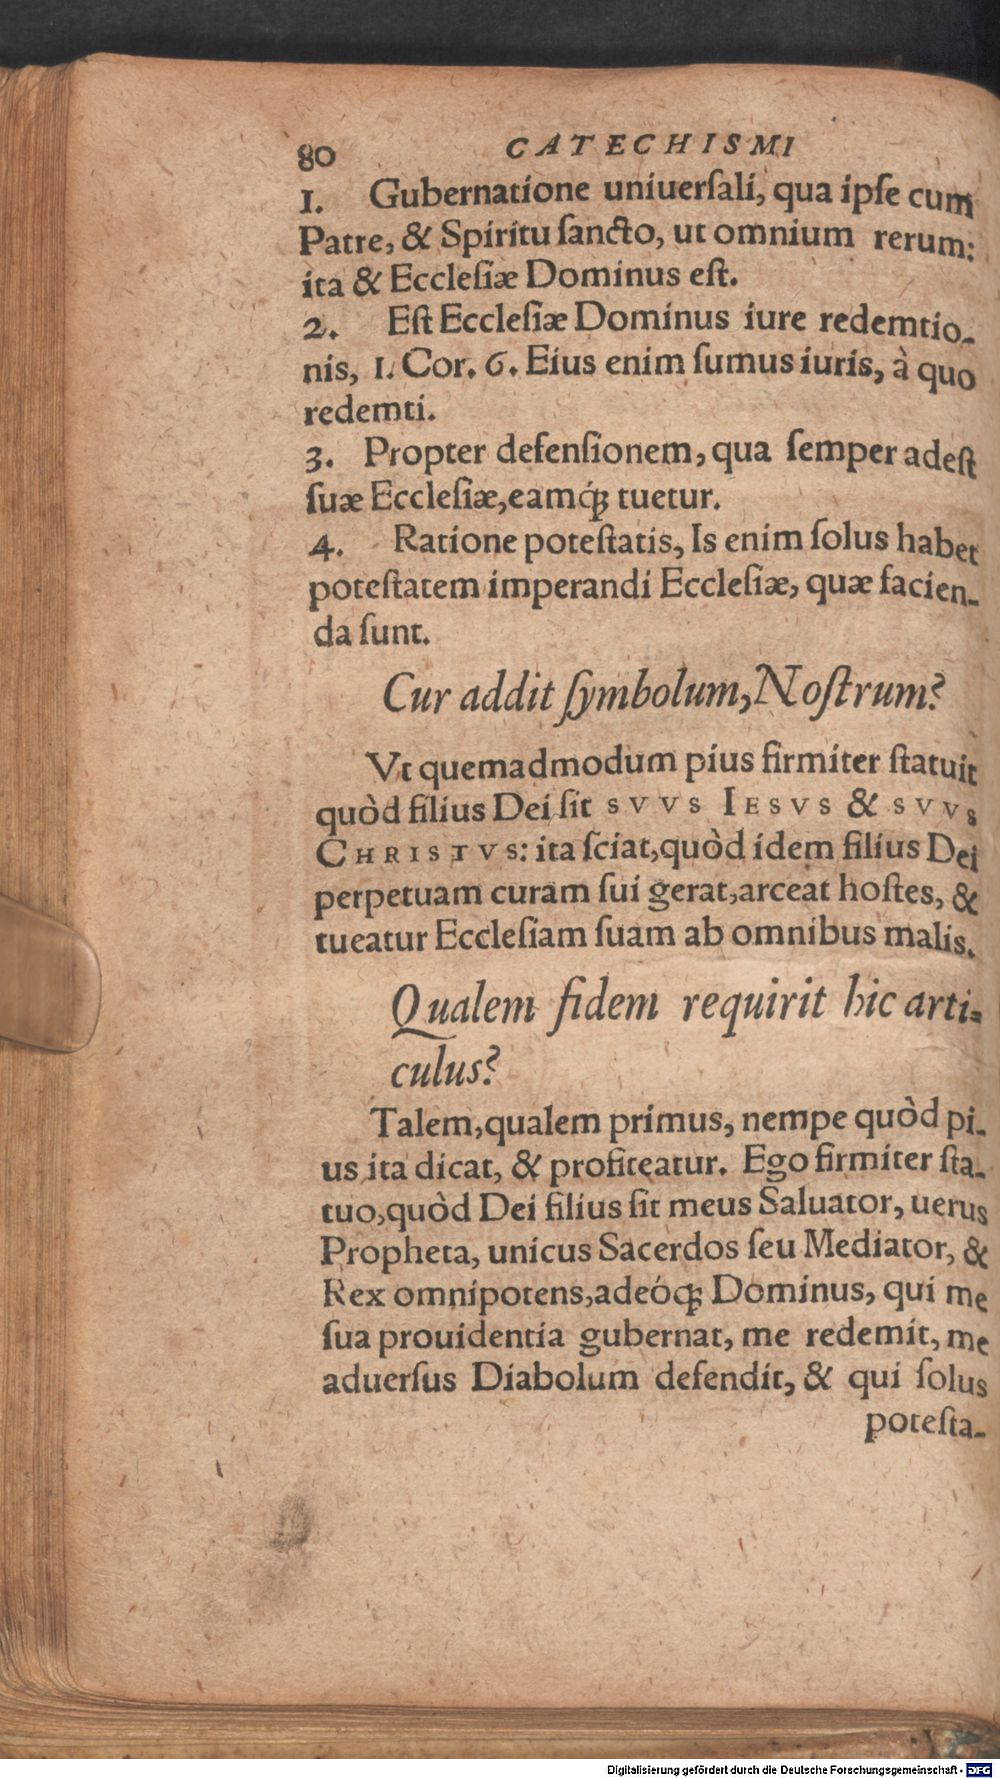 80 CATECHISMI
1. Gubernatione uniuerſali, qua ipſe cum
Patre, & Spiritu ſancto, ut omnium rerum:
ita & Eccleſiæ Dominus eſt.
2. Eſt Eccleſiæ Dominus iure redemtio-
nis, 1. Cor. 6. Eius enim ſumus iuris, à quo
redemti.
3. Propter defenſionem, qua ſemper adeſt
ſuæ Eccleſiæ, eamq́ꝫ tuetur.
4. Ratione poteſtatis, Is enim ſolus habet
poteſtatem imperandi Eccleſiæ, quæ facien-
da ſunt.
Cur addit ſymbolum, Noſtrum?
Vt quemadmodum pius firmiter ſtatuit
quòd filius Dei ſit SVVS IESVS & SVVS
CHRISTVS: ita ſciat, quòd idem filius Dei
perpetuam curam ſui gerat, arceat hoſtes, &
tueatur Eccleſiam ſuam ab omnibus malis.
Qualem fidem requirit hic arti-
culus?
Talem, qualem primus, nempe quòd pi-
us ita dicat, & profiteatur. Ego firmiter ſta-
tuo, quòd Dei filius ſit meus Saluator, uerus
Propheta, unicus Sacerdos ſeu Mediator, &
Rex omnipotens, adeóqꝫ Dominus, qui me
ſua prouidentia gubernat, me redemit, me
aduerſus Diabolum defendit, & qui ſolus
poteſta-
Digitalisierung gefördert durch die Deutsche Forschungsgemeinschaft - DFG